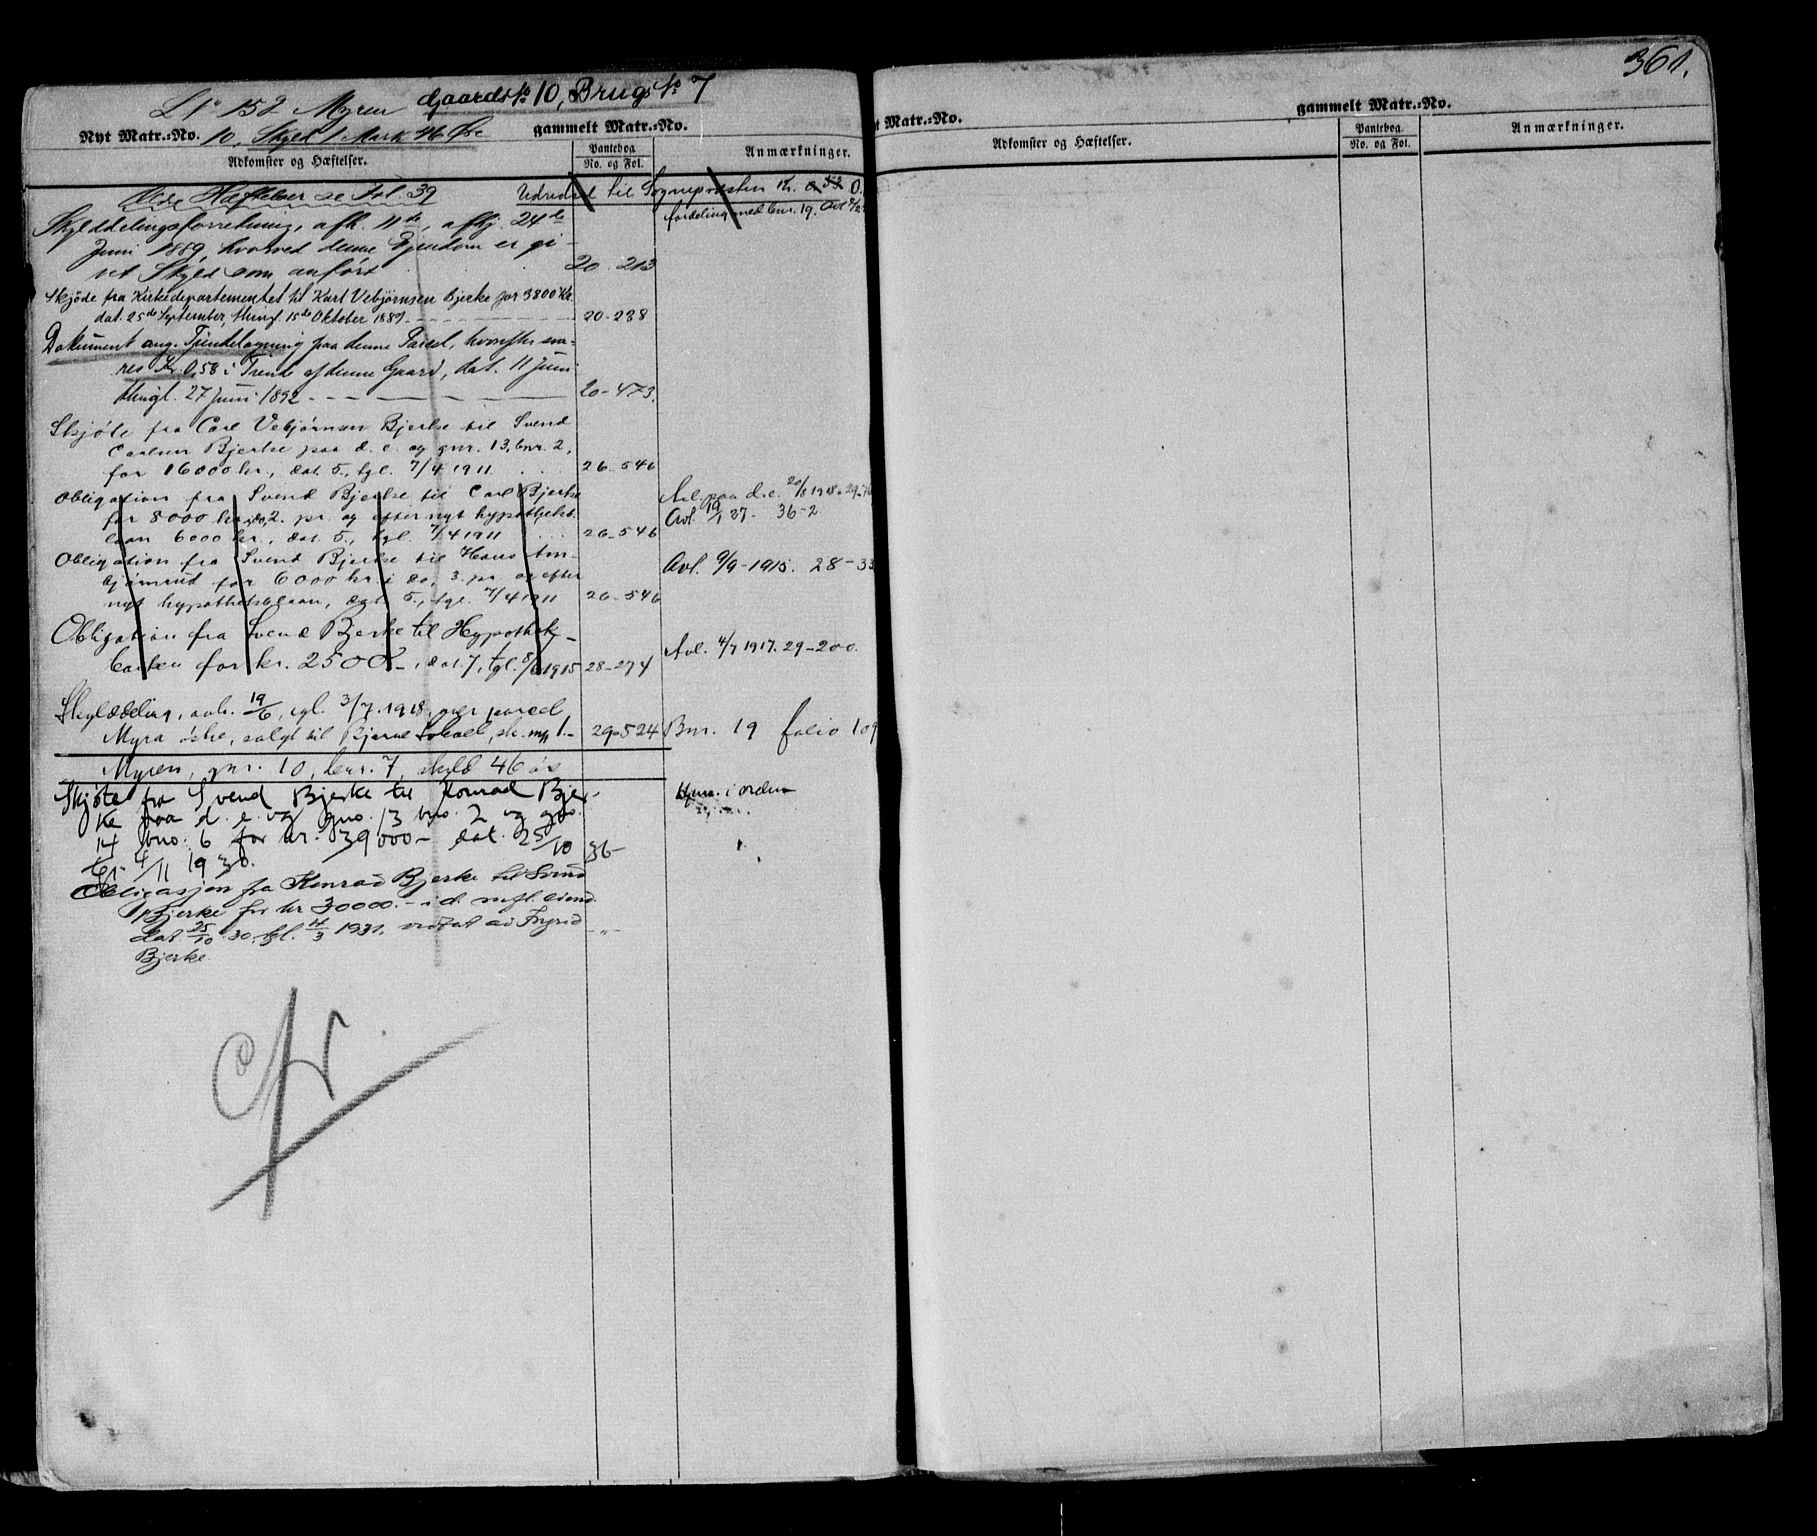 361.
L No 152 Myren Gaards No 10, Brugs No 7
Nyt Matr.-No. 10, Skyld 1 Mark 46 Øre gammelt Matr.-No.
Adkomster og Hæftelser. Pantebog No. og Fol. Anmærkninger.
Ældre Hæftelser se Fol. 39 Udredsel til Sognepræsten Kr. 0.
fordeling med bnr. 19.
Skylddelingsforretning, afh. 11te, afhj. 24de
Juni 1889, hvorved denne Ejendom er gi-
vet Skyld som anført 20 213
Skjøde fra Kirkedepartementet til Karl Vebjørnsen Bjerke for 3800 Kr.
dat. 25de September, thingl 15de Oktober 1889. 20-238
Dokument ang. Tiendelægning paa denne Parcel, hvorefter sva-
res Kr. 0,58 i Tiende af denne Gaard, dat. 11 Juni
thingl. 27 Juni 1892 20-473.
Skjøte fra Carl Vebjørnsen Bjerke til Svend
Carlsen Bjerke paa d. e. og gnr. 13, bnr. 2,
for 16000 kr., dat. 5., tgl. 7/4 1911 26-546
Obligation fra Svend Bjerke til Carl Bjerke Avl. paa d. e. 20/8 1918-29-
for 8000 kr. i do, 2. pr. og efter nyt hypotheks- Avl. 19/1 37- 36-2
laan 6000 kr., dat. 5., tgl. 7/4 1911 26-546
Obligation fra Svend Bjerke til Hans
for 6000 kr. i do, 3. pr. og efter Avl. 9/9-1915. 28-33
nyt hypothekslaan, dat. 5., tgl. 7/4 1911 26-546
Obligation fra Svend Bjerke til Hypothek-
banken for kr. 2500.-, dat. 7, tgl. 8/6 1915 28-274 Avl. 4/7 1917. 29-200.
Skylddeling, avh. 19/6, tgl. 3/7. 1918, over parcel
Myra østre, solgt til Bjarne, sk. mrk 1.- 29-524 Bnr. 19 folio 109
Myren, gnr. 10, bnr. 7, skyld 46 øre
Skjøte fra Svend Bjerke til Konrad Bjer- Hjml. i orden
ke paa d. e. og gno. 13 bno. 2 og gno.
14 bno. 6 for kr. 39000- dat. 25/10 36-
tgl. 4/11 1930.
Obligasjon fra Konrad Bjerke til Svend
Bjerke for kr 30000.- i d. m.fl. eiend.
dat 25/10.30, tgl. 4/3 1931. vedtat av Ingrid -"-
Bjerke
Nyt Matr.-No. gammelt Matr.-No.
Adkomster og Hæftelser. Pantebog. No. og Fol. Anmærkninger.